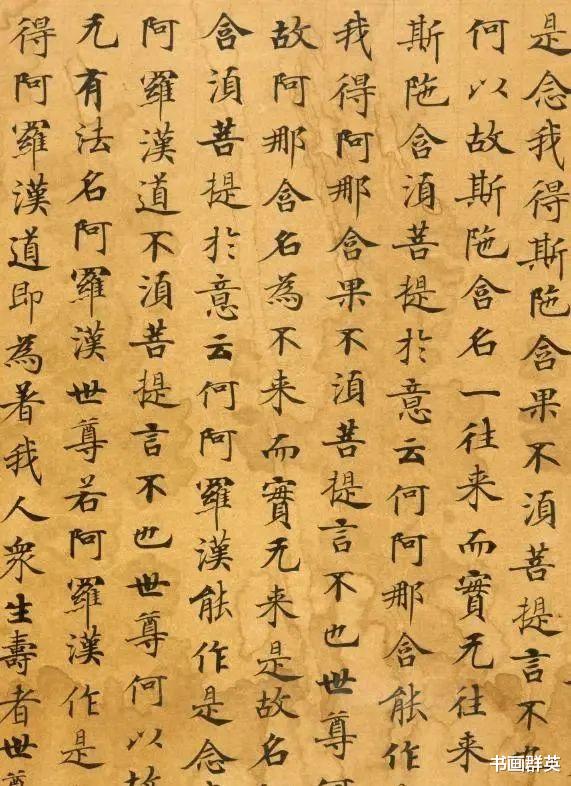 是念我得斯陁含果不湏菩提言不也
何以故斯陁含名一往来而實无往来
斯陁含湏菩提於意云何阿那含能作
我得阿那含果不湏菩提言不也世尊何
故阿那含名為不来而實无来是故名
含湏菩提於意云何阿羅漢能作是念
阿羅漢道不湏菩提言不也世尊何以故
无有法名阿羅漢世尊若阿羅漢作是
得阿羅漢道即為著我人衆生壽者世尊
书画群英